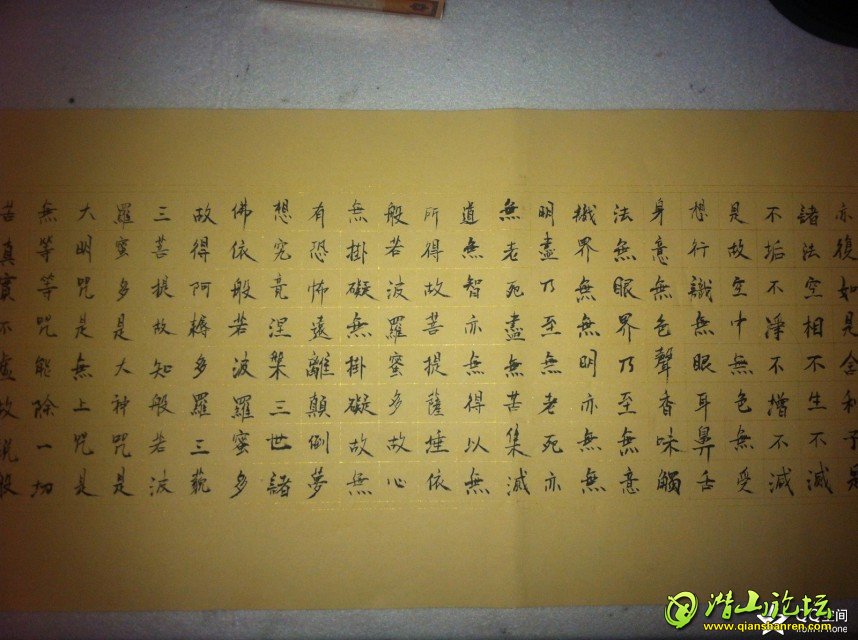 亦復如是舍利子是
諸法空相不生不滅
不垢不淨不增不減
是故空中無色無受
想行識無眼耳鼻舌
身意無色聲香味觸
法無眼界乃至無意
識界無無明亦無無
明盡乃至無老死亦
無老死盡無苦集滅
道無智亦無得以無
所得故菩提薩埵依
般若波羅蜜多故心
無掛礙無掛礙故無
有恐怖遠離顛倒夢
想究竟涅槃三世諸
佛依般若波羅蜜多
故得阿耨多羅三藐
三菩提故知般若波
羅蜜多是大神咒是
大明咒是無上咒是
無等等咒能除一切
苦真實不虛故說般
潜山论坛
www.qianshanren.com